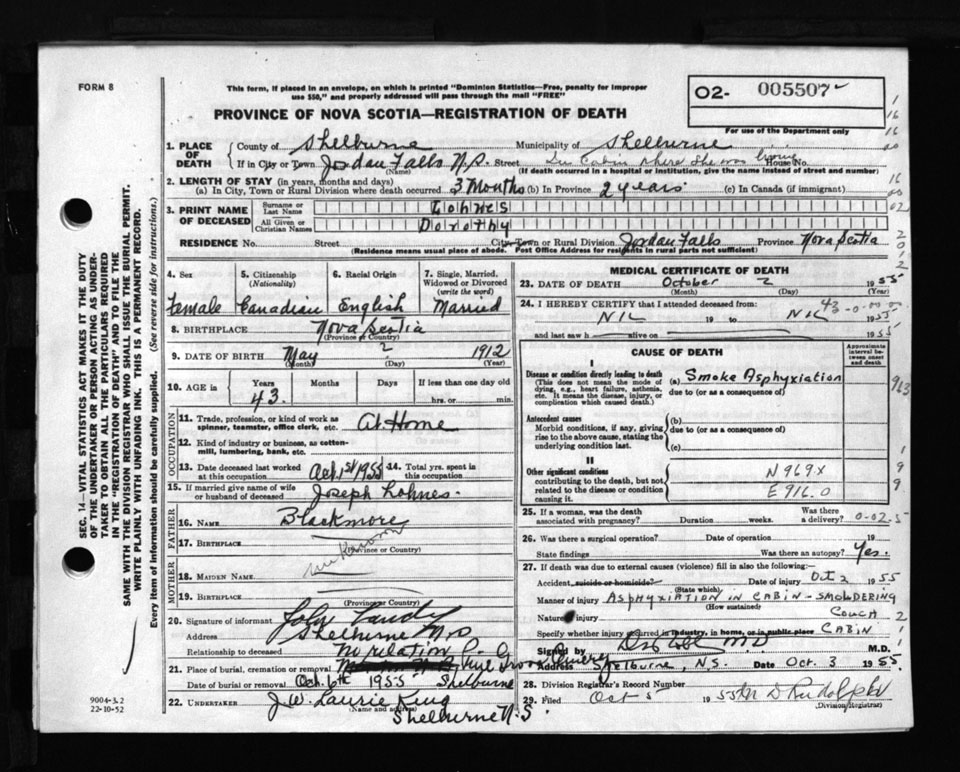 FORM 8
This form, if placed in an envelope, on which is printed "Dominion Statistics—Free, penalty for improper
use $50," and properly addressed will pass through the mail "FREE"
PROVINCE OF NOVA SCOTIA—REGISTRATION OF DEATH
O2- 005507
For use of the Department only
1. PLACE OF DEATH
County of Shelburne Municipality of Shelburne
If in City or Town Jordan Falls N.S. Street In Cabin where she was living House No.
(Name) (If death occurred in a hospital or institution, give the name instead of street and number)
2. LENGTH OF STAY (in years, months and days)
(a) In City, Town or Rural Division where death occurred 3 Months (b) In Province 2 years (c) In Canada (if immigrant)
3. PRINT NAME OF DECEASED
Surname or Last Name Lohnes
All Given or Christian Names Dorothy
RESIDENCE No. Street City, Town or Rural Division Jordan Falls Province Nova Scotia
(Residence means usual place of abode. Post Office Address for residents in rural parts not sufficient)
4. Sex Female
5. Citizenship (Nationality) Canadian
6. Racial Origin English
7. Single, Married, Widowed or Divorced (write the word) Married
8. BIRTHPLACE Nova Scotia
(Province or Country)
9. DATE OF BIRTH May 2 1912
(Month) (Day) (Year)
10. AGE in Years 43 Months Days If less than one day old
hrs. or min.
OCCUPATION
11. Trade, profession, or kind of work as
spinner, teamster, office clerk, etc. At Home
12. Kind of industry or business, as cotton-
mill, lumbering, bank, etc.
13. Date deceased last worked
at this occupation Oct 1st 1955
14. Total yrs. spent in
this occupation
15. If married give name of wife
or husband of deceased Joseph Lohnes.
FATHER
16. NAME Blackmore
17. BIRTHPLACE
(Province or Country)
unknown
MOTHER
18. MAIDEN NAME
19. BIRTHPLACE
(Province or Country)
20. Signature of informant John
Address Shelburne N.S
Relationship to deceased no relation
21. Place of burial, cremation or removal
Date of burial or removal Oct. 6th 1955 Shelburne
22. UNDERTAKER J.W. Laurie King
(Name and address)
Shelburne N.S.
MEDICAL CERTIFICATE OF DEATH
23. DATE OF DEATH October 2 1955
(Month) (Day) (Year)
24. I HEREBY CERTIFY that I attended deceased from:
NIL 19 to NIL 1955
and last saw h alive on 1955
CAUSE OF DEATH
Approximate interval between onset and death
I
Disease or condition directly leading to death
(This does not mean the mode of
dying, e.g., heart failure, asthenia,
etc. It means the disease, injury, or
complication which caused death.)
(a) Smoke Asphyxiation
due to (or as a consequence of)
Antecedent causes
Morbid conditions, if any, giving
rise to the above cause, stating the
underlying condition last.
(b)
due to (or as a consequence of)
(c)
II
Other significant conditions
contributing to the death, but not
related to the disease or condition
causing it.
N969X
E916.0
25. If a woman, was the death
associated with pregnancy? Duration weeks. Was there
a delivery? 0-02-5
26. Was there a surgical operation? Date of operation 19
State findings Was there an autopsy? Yes.
27. If death was due to external causes (violence) fill in also the following:—
Accident, suicide or homicide? Date of injury Oct 2 1955
(State which)
Manner of injury ASPHYXIATION IN CABIN - SMOLDERING
(How sustained)
Nature of injury COUCH
Specify whether injury occurred in industry, in home, or in public place CABIN
Signed by M.D. M.D.
Address Shelburne, N.S. Date Oct. 3 1955
28. Division Registrar's Record Number
29. Filed Oct 5 1955 M D Rudolph
(Division Registrar)
SEC. 14—VITAL STATISTICS ACT MAKES IT THE DUTY
OF THE UNDERTAKER OR PERSON ACTING AS UNDER-
TAKER TO OBTAIN ALL THE PARTICULARS REQUIRED
IN THE "REGISTRATION OF DEATH" AND TO FILE THE
SAME WITH THE DIVISION REGISTRAR WHO SHALL ISSUE THE BURIAL PERMIT.
WRITE PLAINLY WITH UNFADING INK. THIS IS A PERMANENT RECORD.
Every item of information should be carefully supplied. (See reverse side for instructions.)
9004-3.2
22-10-52